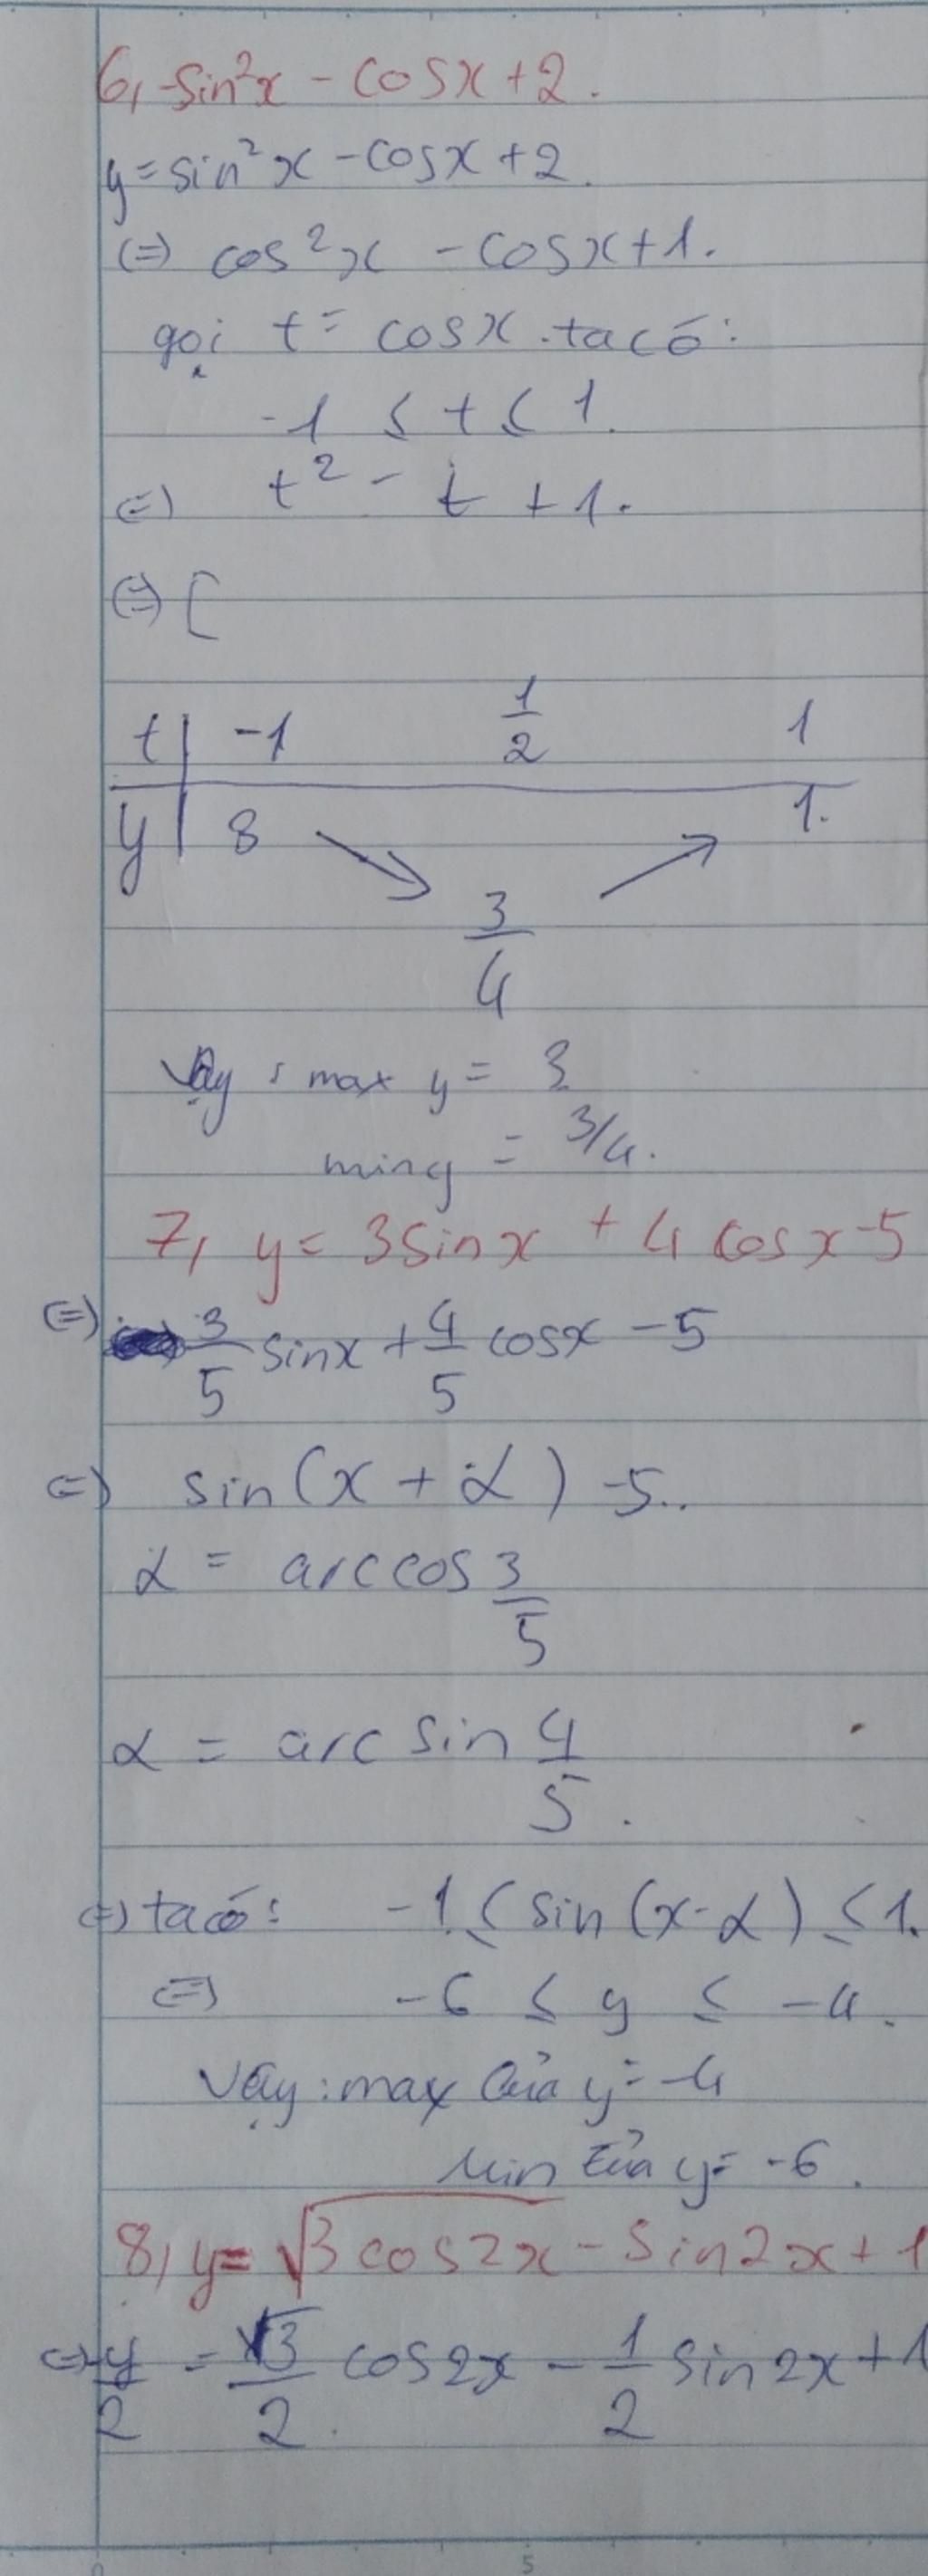 6, -sin²x - cosx + 2.
y = sin²x - cosx + 2.
(=) cos²x - cosx + 1.
gọi t = cosx . ta có:
-1 ≤ t ≤ 1.
(=) t² - t + 1.
(=) [
t | -1 1/2 1
y | 8 ↘ 3/4 ↗ 1.
Vậy : max y = 3
min y = 3/4.
7, y = 3sinx + 4cosx - 5
(=) 3/5 sinx + 4/5 cosx - 5
(=) sin(x + α) - 5..
α = arccos 3/5
α = arcsin 4/5.
(=) ta có: -1 ≤ sin(x - α) ≤ 1.
(=) -6 ≤ y ≤ -4.
Vậy : max của y = -4
Min của y = -6.
8, y = √3cos2x - sin2x + 1
(=) y/2 = √3/2 cos2x - 1/2 sin2x + 1
0 5